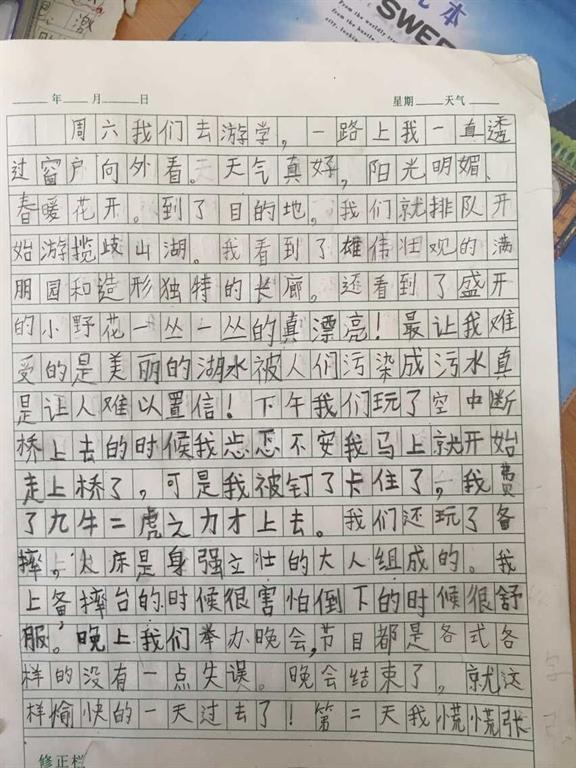 激
本
SWEE
年 月 日 星期 天气
周六我们去游学，一路上我一真透
过窗户向外看。天气真好，阳光明媚、
春暖花开。到了目的地，我们就排队开
始游揽歧山湖。我看到了雄伟壮观的满
朋园和造形独特的长廊。还看到了盛开
的小野花一丛一丛的真漂亮！最让我难
受的是美丽的湖水被人们污染成污水真
是让人难以置信！下午我们玩了空中断
桥上去的时候我忐忑不安我马上就开始
走上桥了，可是我被钉了卡住了，我费
了九牛二虎之力才上去。我们还玩了备
摔，人床是身强立壮的大人组成的。我
上备摔台的时候很害怕倒下的时候很舒
服。晚上我们举办晚会，节目都是各式各
样的没有一点失误。晚会结束了，就这
样愉快的一天过去了！第二天我慌慌张
修正栏